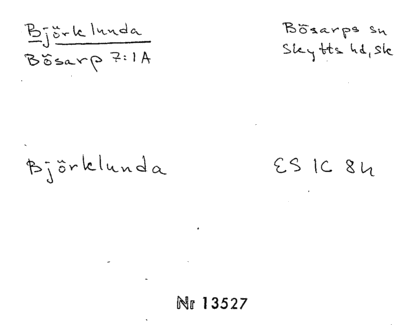 Björklunda
Bösarp 7:1A
Bösarps sn
Skytts hd, Sk
Björklunda
ES 1C 8h
Nr 13527